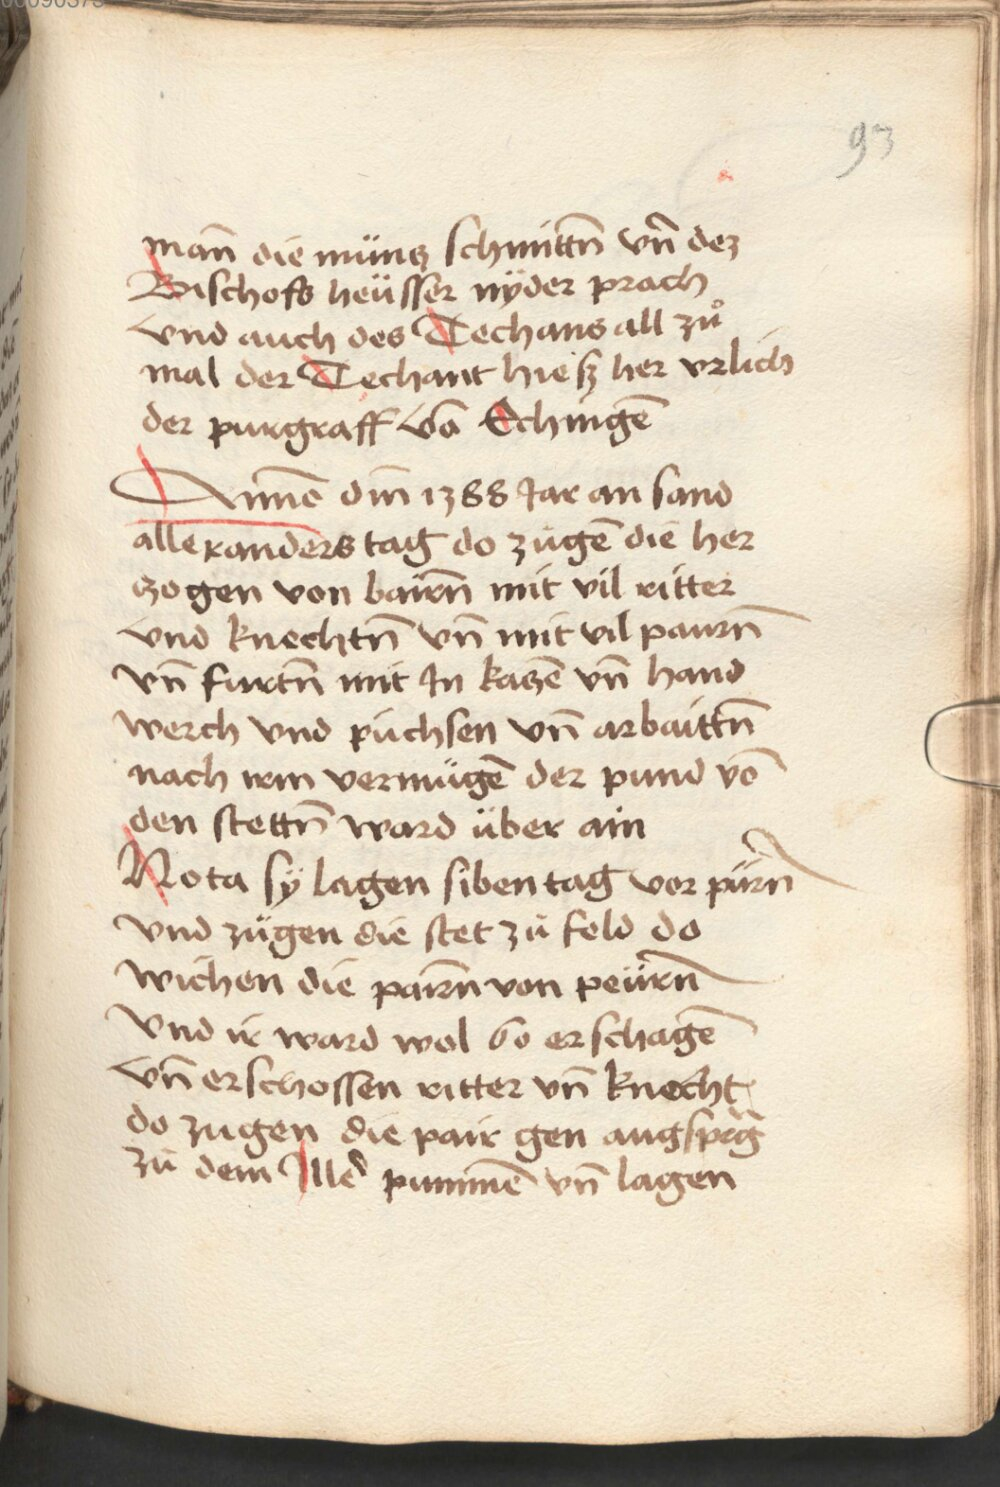 00090375
93
man̄ die müns schmittn̄ vn̄ dez
Bischofs heüsser nÿder prach
vnd auch des Techans all zů
mal der Techant hiesz her vrlich
der purgraff vō Echingē
Anno dm̄ 1388 Jar an sand
allexanders tag do zugē die her
tzogen von bairn̄ mit vil ritter
vnd knechtn̄ vn̄ mit vil paurn̄
vn̄ furtn̄ mit In kaczē vn̄ hand
werch vnd püchsen vn̄ arbaittn̄
nach irm vermügē der pund vō
den stettn̄ ward über ain
Nota sÿ lagen siben tag vor pürn̄
vnd zügen die stet zů feld do
wichen die pairn von peürn̄
vnd ir ward wol 60 erschagē
vn̄ erschossen ritter vn̄ knecht
do zugen die pair gen augsprḡ
zů dem Illꝰ pummē vn̄ lagen